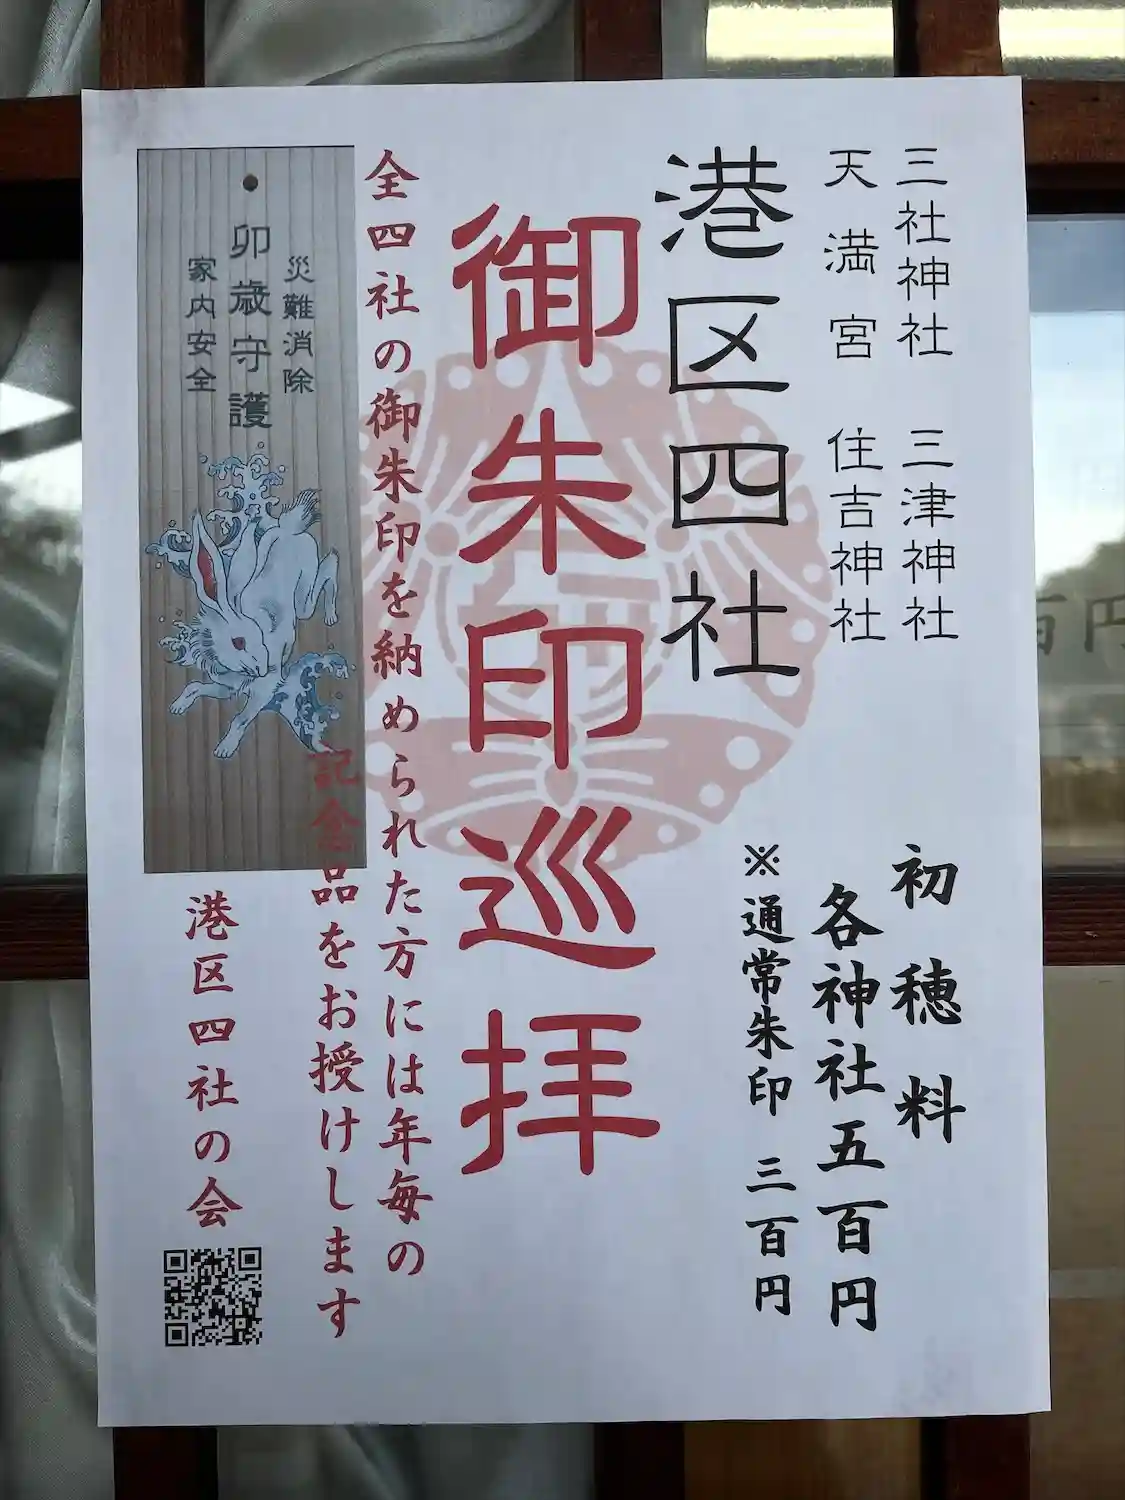 三社神社　三津神社
天満宮　住吉神社
港区四社
御朱印巡拝
初穂料
各神社五百円
※通常朱印　三百円
全四社の御朱印を納められた方には年毎の
記念品をお授けします
災難消除
卯歳守護
家内安全
港区四社の会
百円